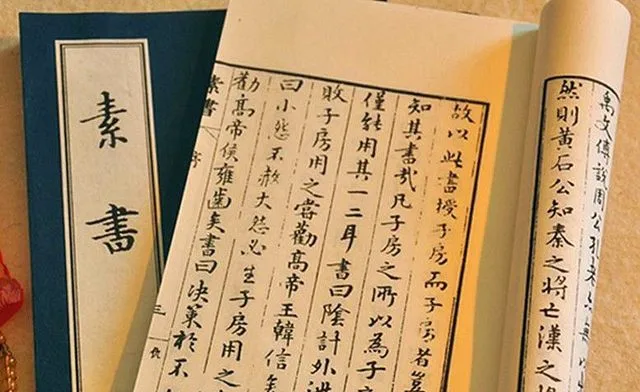 禹文傅說周公孔老亦無以
然則黃石公知秦之將亡漢之將
故以此書授子房而子房者豈
知其書哉凡子房之所以為子
僅能用其一二耳書曰陰計外泄
敗子房用之嘗勸高帝王韓信矣
曰小怨不赦大怨必生子房用之
勸高帝侯雍齒矣書曰決策於不
素書 序 三
素書